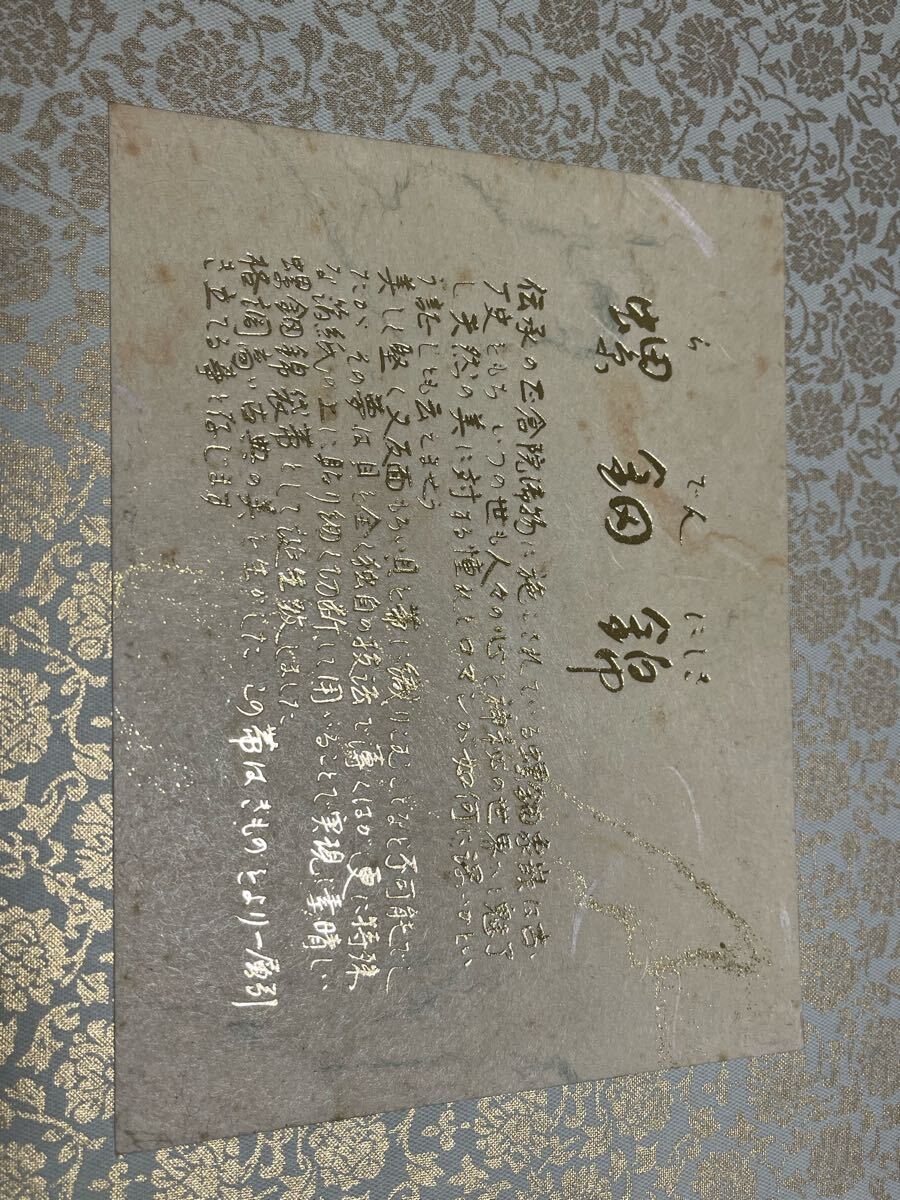 螺鈿錦
らでんにしき
伝承の正倉院御物に施こされている螺鈿象嵌は古い
歴史をもち いつの世も人々の心を神秘の世界へと魅了
し 天然の美に対する憧れとロマンが如何に深いかとい
う証しとも云えませう
美しく堅く又反面もろい貝を帯に織りこむことなど不可能でし
たが その夢は貝を全く独自の技法で薄くはがし更に特殊
な箔紙の上に貼り細く切断して用いることで実現し素晴しい
螺鈿錦袋帯として誕生致しまして、
格調高い古典の美を生かした この帯はきものをより一層引
き立てる事となります